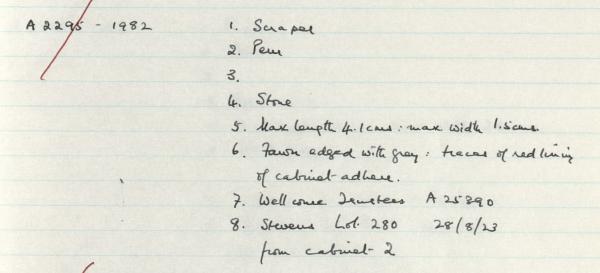 A 2295 - 1982 1. Scraper
2. Peru
3.
4. Stone
5. Max length 4.1cms : max width 1.5cms
6. Fawn edged with grey : traces of red lining
of cabinet adhere.
7. Wellcome Trustees A 25890
8. Stevens Lot. 280 28/8/23
from cabinet 2